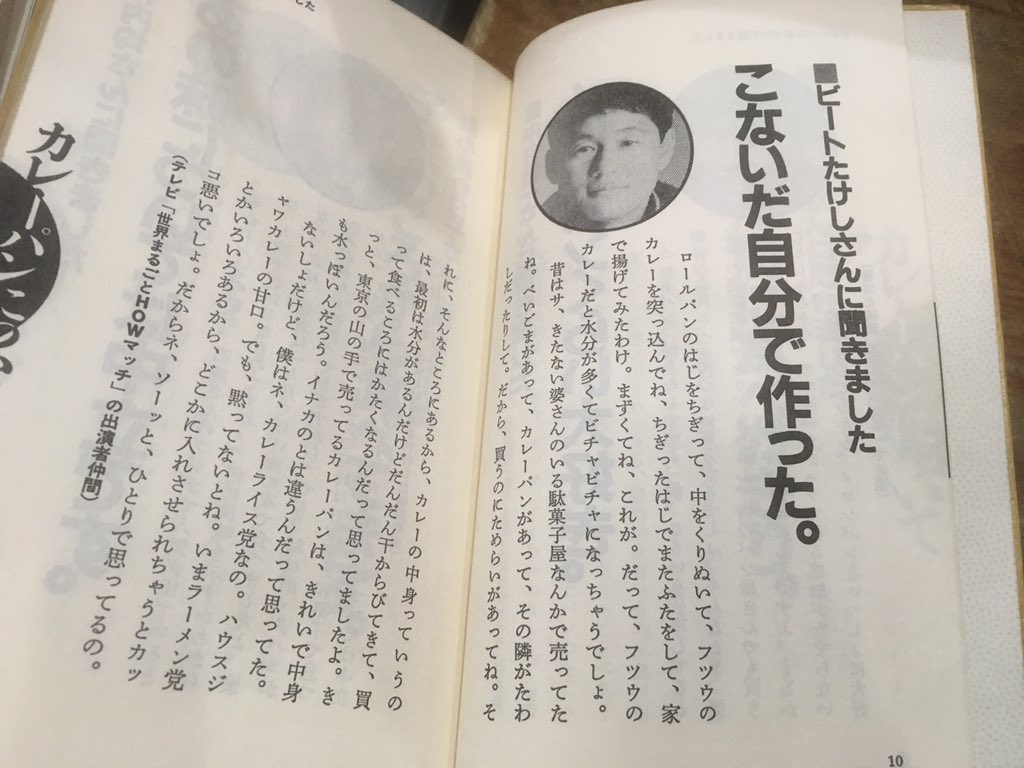 ■ビートたけしさんに聞きました
こないだ自分で作った。
ロールパンのはじをちぎって、中をくりぬいて、フツウの
カレーを突っ込んでね、ちぎったはじでまたふたをして、家
で揚げてみたわけ。まずくてね、これが。だって、フツウの
カレーだと水分が多くてビチャビチャになっちゃうでしょ。
昔はサ、きたない婆さんのいる駄菓子屋なんかで売ってた
ね。べいごまがあって、カレーパンがあって、その隣がたわ
しだったりして。だから、買うのにためらいがあってね。そ
10
れに、そんなところにあるから、カレーの中身っていうの
は、最初は水分があるんだけどだんだん干からびてきて、買
って食べるころにはかたくなるんだって思ってましたよ。き
っと、東京の山の手で売ってるカレーパンは、きれいで中身
も水っぽいんだろう。イナカのとは違うんだって思ってた。
ないしょだけど、僕はネ、カレーライス党なの。ハウスジ
ャワカレーの甘口。でも、黙ってないとね。いまラーメン党
とかいろいろあるから、どこかに入れさせられちゃうとカッ
コ悪いでしょ。だからネ、ソーッと、ひとりで思ってるの。
(テレビ「世界まるごとHOWマッチ」の出演者仲間)
カレーパンに
した